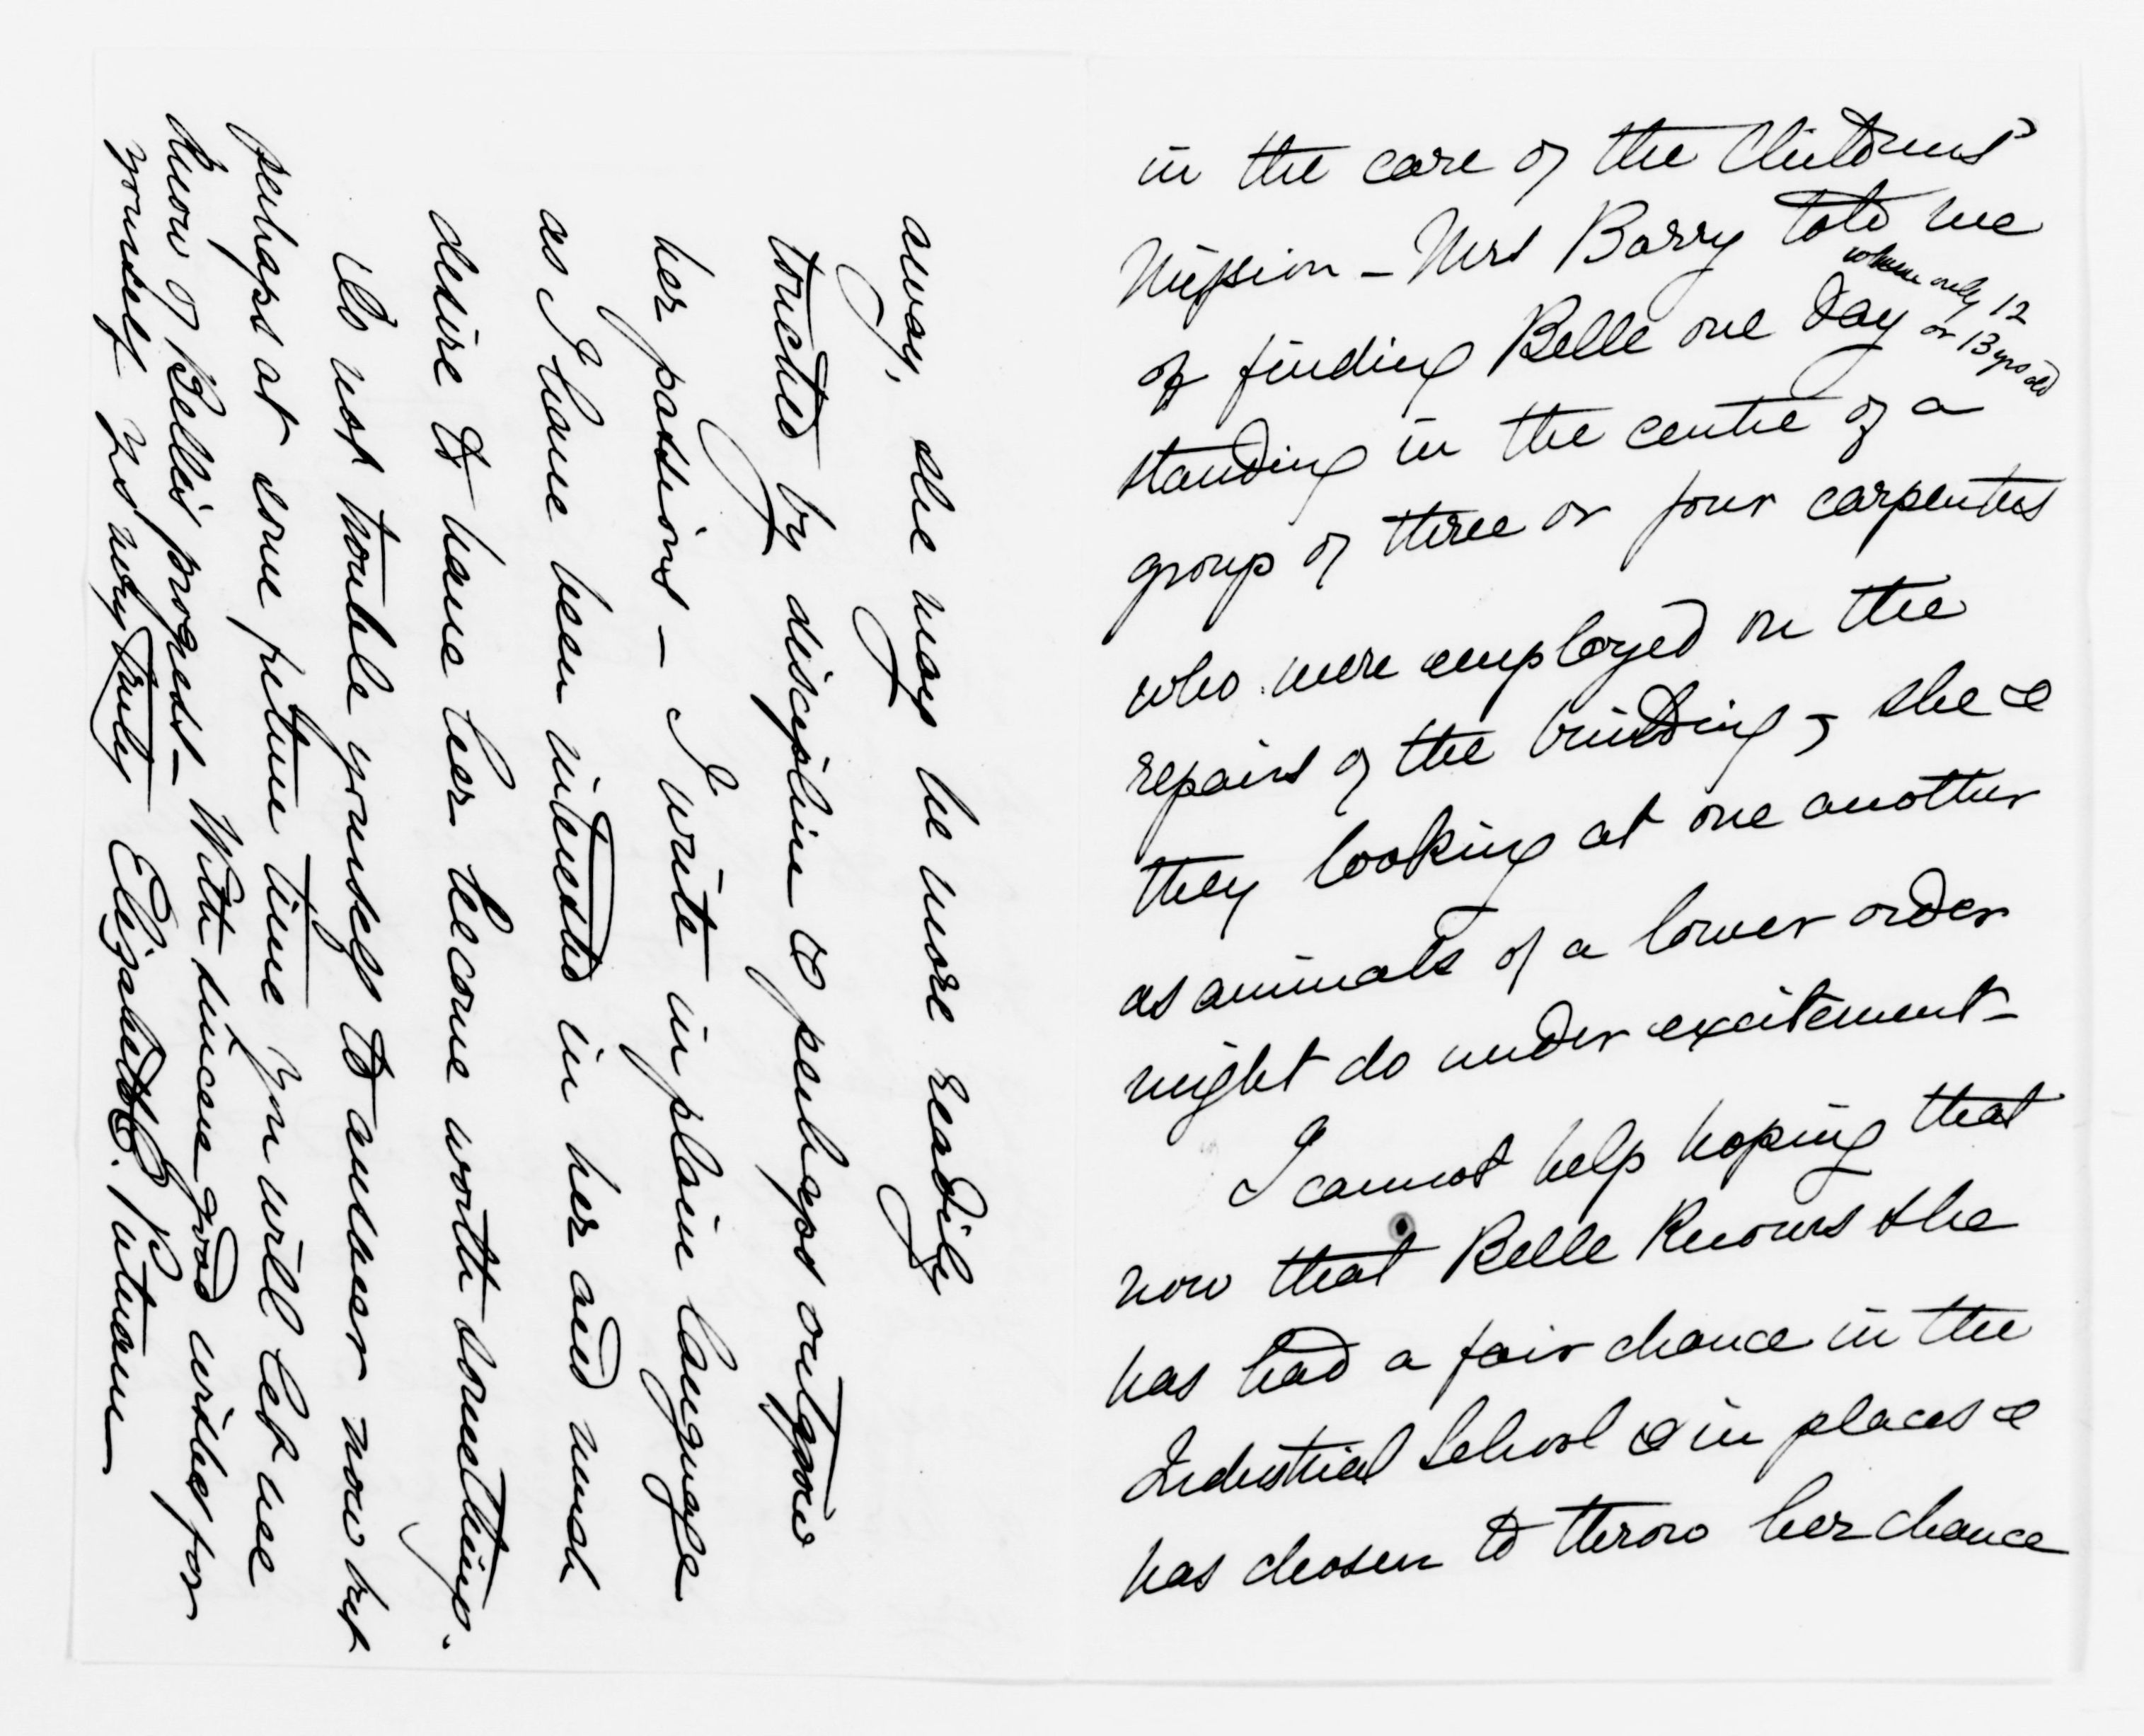 in the care of the Childrens'
Mission – Mrs Barry told me
of finding Belle one day when only 12 or 13 yrs old
standing in the centre of a
group of three or four carpenters
who were employed on the
repairs of the building, she &
they looking at one another
as animals of a lower order
might do under excitement –
I cannot help hoping that
now that Belle knows she
has had a fair chance in the
Industrial School & in places &
has chosen to throw her chance
away, she may be more readily
touched by discipline & perhaps outgrow
her passions – I write in plain language
as I have been interested in her and much
desire to have her become worth something.
Do not trouble yourself to answer now but
perhaps at some future time you will let me
know of Belle's progress – With sincere good wishes for
yourself. Yrs very truly Elizabeth C. Putnam